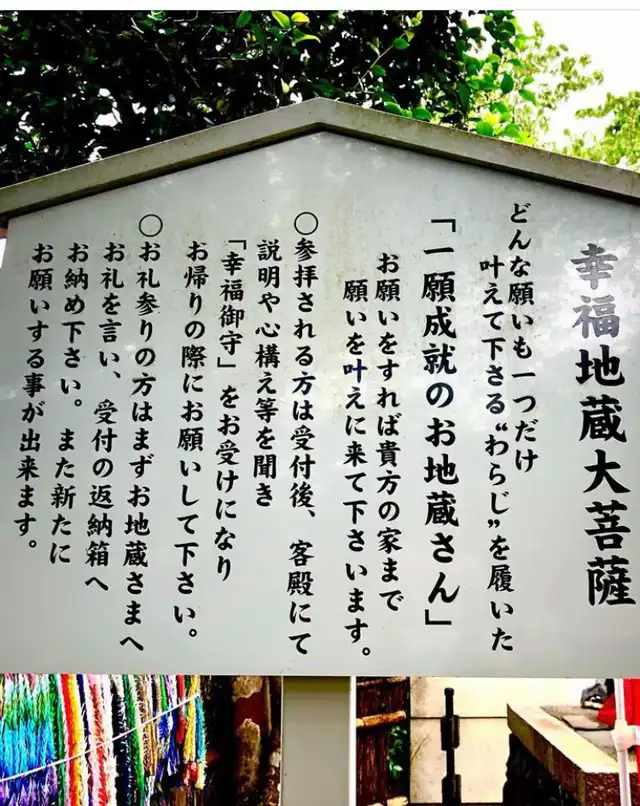 幸福地蔵大菩薩
どんな願いも一つだけ
叶えて下さる“わらじ”を履いた
「一願成就のお地蔵さん」
お願いをすれば貴方の家まで
願いを叶えに来て下さいます。
〇参拝される方は受付後、客殿にて
説明や心構え等を聞き
「幸福御守」をお受けになり
お帰りの際にお願いして下さい。
〇お礼参りの方はまずお地蔵さまへ
お礼を言い、受付の返納箱へ
お納め下さい。また新たに
お願いする事が出来ます。